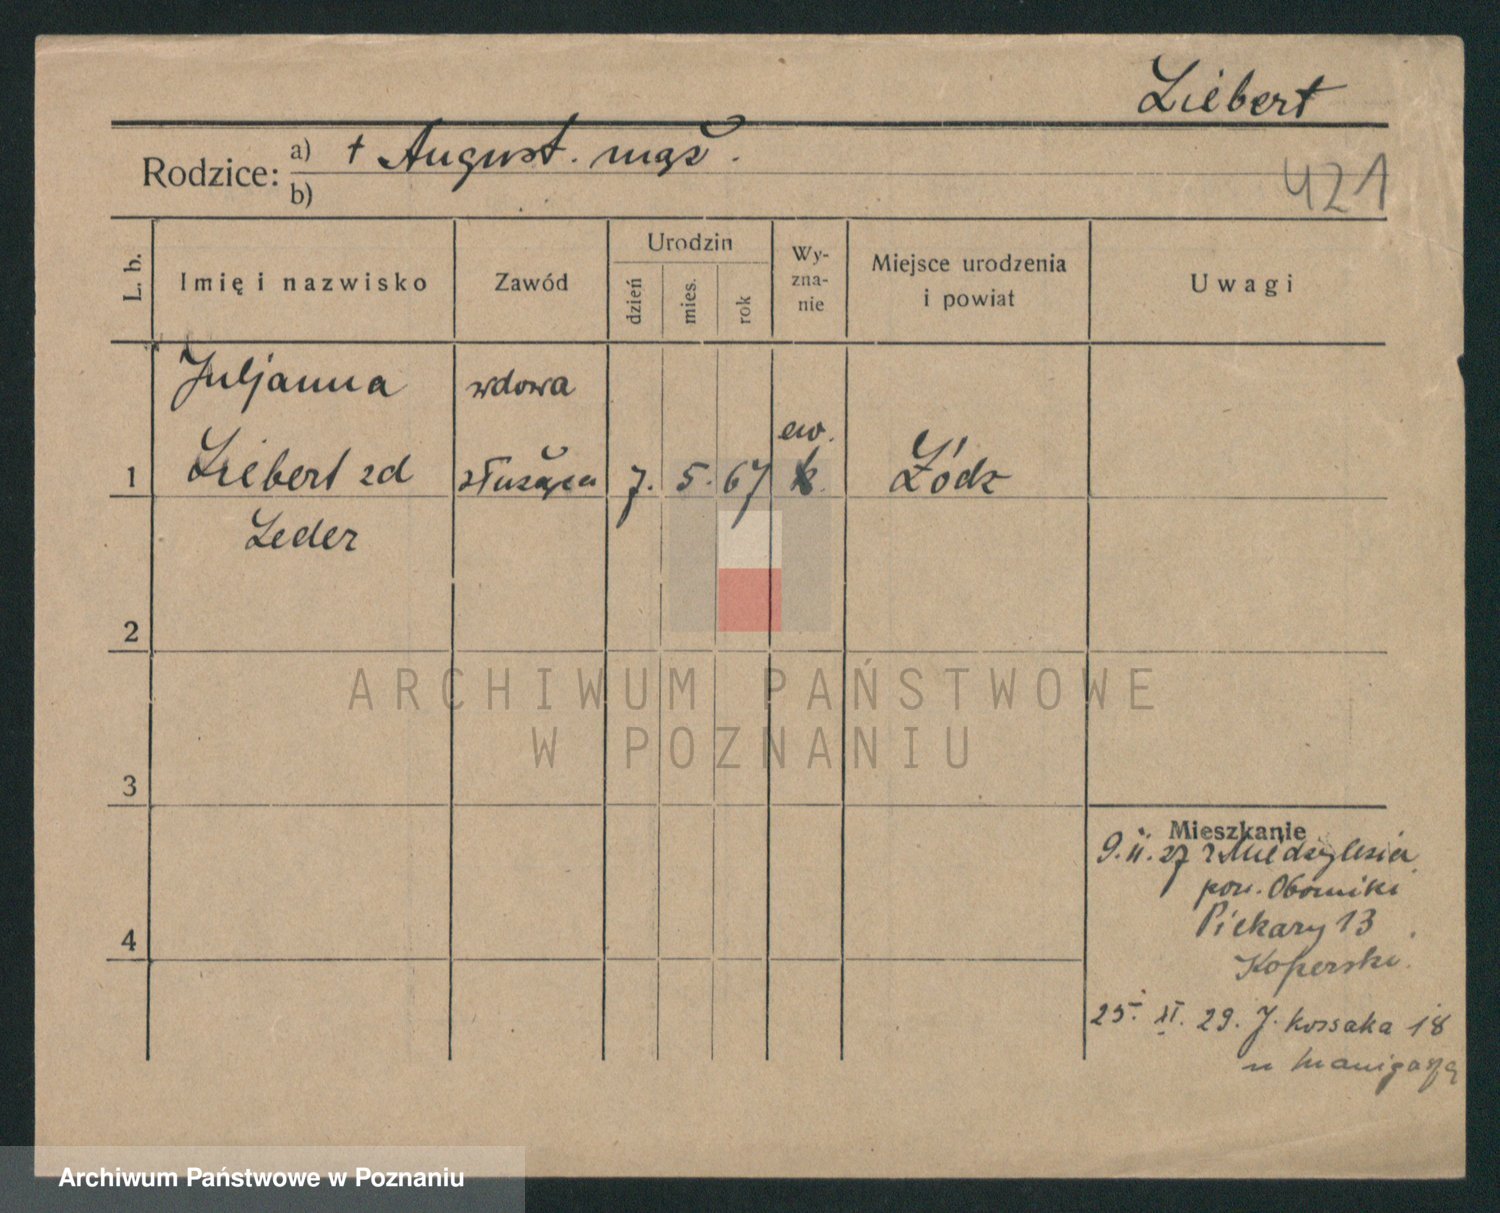 Liebert
Rodzice: a) † August. mąż.
b)
421
L. b.
Imię i nazwisko
Zawód
Urodzin
dzień
mies.
rok
Wy-
zna-
nie
Miejsce urodzenia
i powiat
Uwagi
Juljanna wdowa
ew.
1 Liebert zd służąca 7. 5. 67 k. Łódz
Leder
2
3
4
Mieszkanie
9.II.27 z Międzylesia
pow. Oborniki
Piekary 13
Koperski.
25. XI. 29. J. Kossaka 18
u
ARCHIWUM PAŃSTWOWE
W POZNANIU
Archiwum Państwowe w Poznaniu